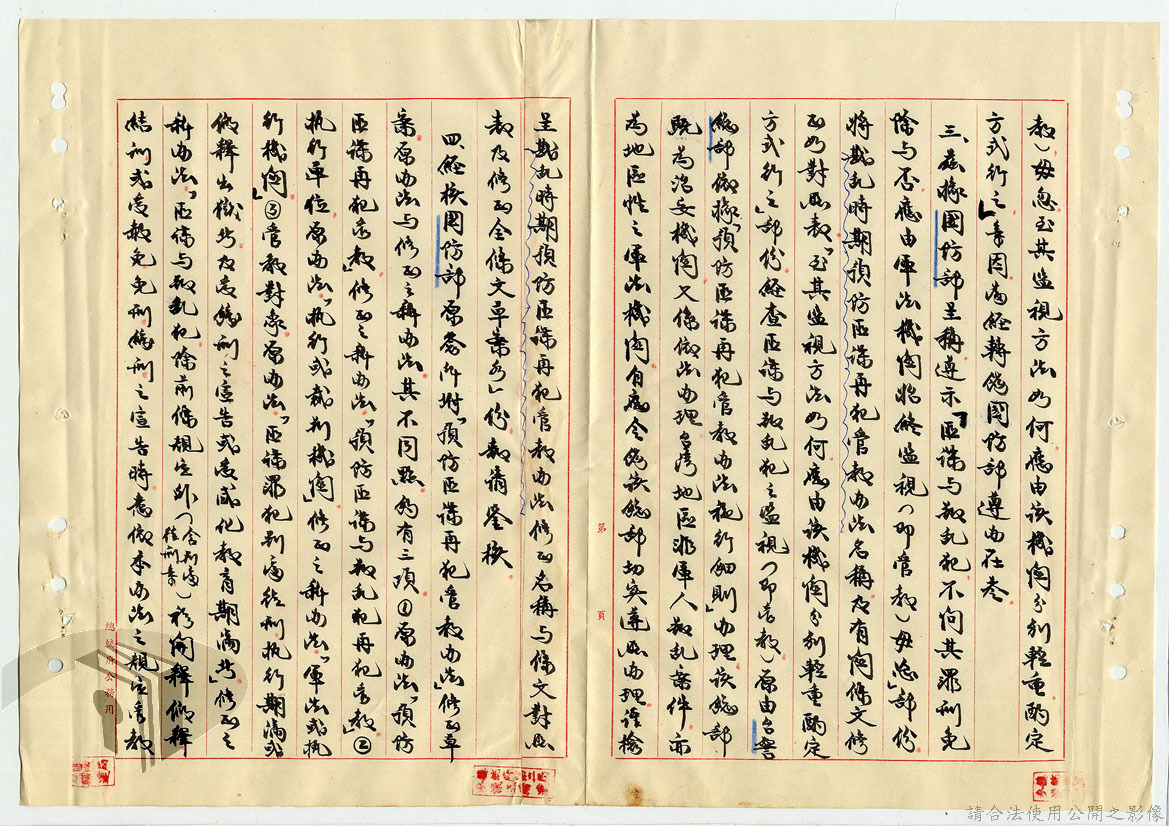 教）毋忽至其監視方法如何應由該機關分別輕重酌定
方式行之」等因當經轉飭國防部遵如在卷
三、茲據國防部呈稱遵示「匪諜與叛亂犯不問其罪刑免
除與否應由軍法機關始終監視（即管教）毋忽」部份
將戡亂時期預防匪諜再犯管教辦法名稱及有關條文修
正如對照表「至其監視方法如何應由該機關分別輕重酌定
方式行之」部份經查匪諜與叛亂犯之監視（即管教）原由台警
總部依據「預防匪諜再犯管教辦法施行細則」辦理該總部
既為治安機關又係依法辦理台灣地區非軍人叛亂案件亦
為地區性之軍法機關自應令飭該總部切實遵照辦理謹檢
第 頁
呈戡亂時期預防匪諜再犯管教辦法修正名稱與條文對照
表及修正全條文草案各一份敬請鑒核
四、經核國防部原簽附「預防匪諜再犯管教辦法」修正草
案原辦法與修正之新辦法其不同點約有三項①原辦法「預防
匪諜再犯管教」修正之新辦法「預防匪諜與叛亂犯再犯管教」②
執行單位原辦法「執行或裁判機關」修正之新辦法「軍法或執
行機關」③管教對象原辦法「匪諜罪犯判處徒刑執行期滿或
依釋出獄時及受緩刑之宣告或受感化教育期滿時」修正之
新辦法「匪諜與叛亂犯除前條規定外（合刑滿徒刑等）被開釋依釋
結訓或受赦免免刑緩刑之宣告時應依本辦法之規定管教
總統府公務用
請合法使用公開之影像